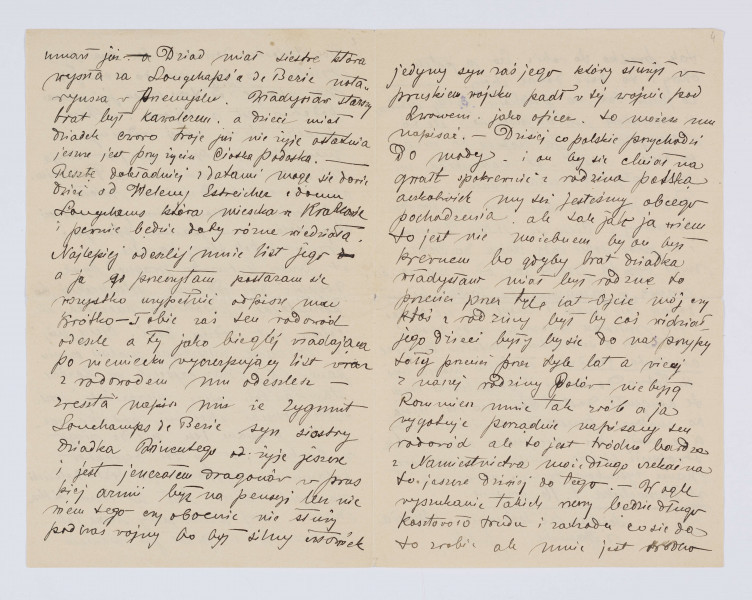 umarł już – a Dziad miał siostrę która
wyszła za Longchaps'a de Berie nota-
ryusza w Przemyślu. Władysław starszy
brat był kawalerem. a dzieci miał
dziadek czworo troje już nie żyje ostatnia
jeszcze jest przy życiu Ciotka Podoska. —
Resztę dokładniej i datami mogę się
dzieci od Heleny Estreicher z domu
Longchams która mieszka w Krakowie
i pewnie będzie daty różne wiedziała.
Najlepiej odeszlij mnie list jego
a ja go przeczytam postaram się
wszystko wypełnić odpiszę mu
krótko – Tobie zaś ten rodowód
odeszlę a Ty jako bieglej władająca
po niemiecku wyczerpujący list
z rodowodem mu odeszlesz —
zresztą napisz mu że Zygmunt
Longchamps de Berie syn siostry
dziadka Wincentego żyje jeszcze
i jest jenerałem dragonów w prus
kiej armii był na pensyi lecz nie
wiem tego czy obecnie nie służy
podczas wojny bo był silny człowiek
jedyny syn zaś jego który służył w
pruskiem wojsku padł w tej wojnie pod
Lwowem. jako oficer. to możesz mu
napisać. — Dzisiaj co polskie przychodzi
Do mody. i on by się chciał na
gwałt spokrewnić z rodziną polską
aczkolwiek my też jesteśmy obcego
pochodzenia. ale tak jak ja wiem
to jest nie możebnem by on był
krewnem bo gdyby brat dziadka
Władysław miał był rodzinę to
przecież przez tyle lat Ojciec mój czy
ktoś z rodziny był by coś widział
jego dzieci byłyby się do nas
przecież przez tyle lat a więcej
z naszej rodziny Polów nie byłą
Rozumiesz mnie tak zrób a ja
wygotuję porządnie napisany ten
rodowód ale to jest trudno bardzo
z Namiestnictwa możesz długo czekać na
to jeszcze dzisiaj do tego. — W ogóle
wyszukanie takich rzeczy będzie długo
kosztować trudu i zachodu co się da
to zrobię ale mnie jest trudno